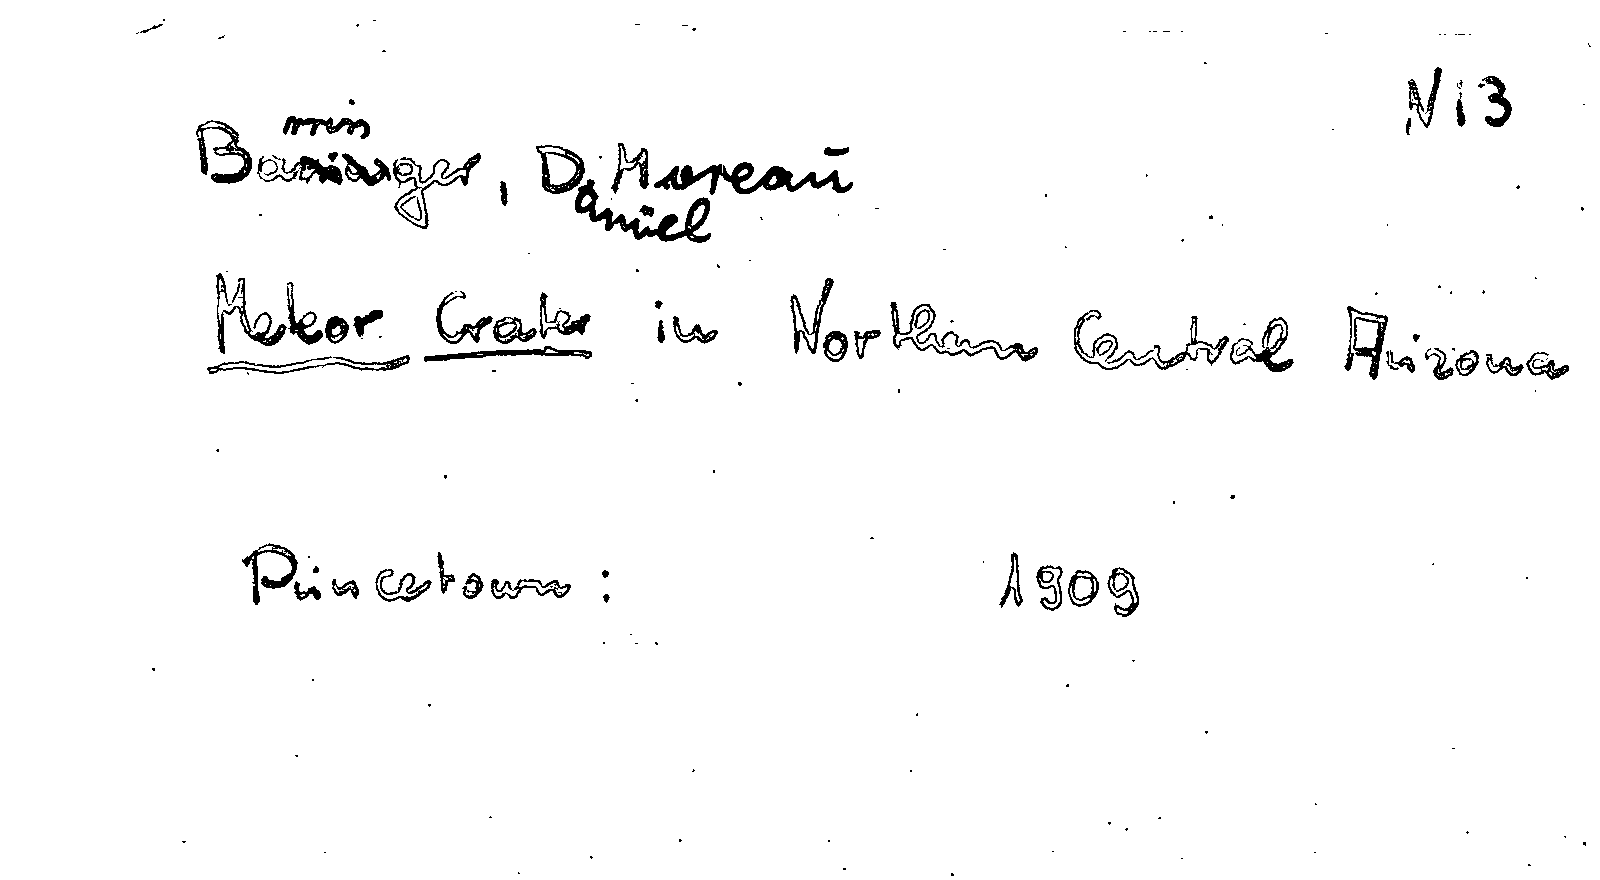 N i 3
Barringer, D. Moreau
Daniel
Meteor Crater in Northern Central Arizona
Princetown : 1909